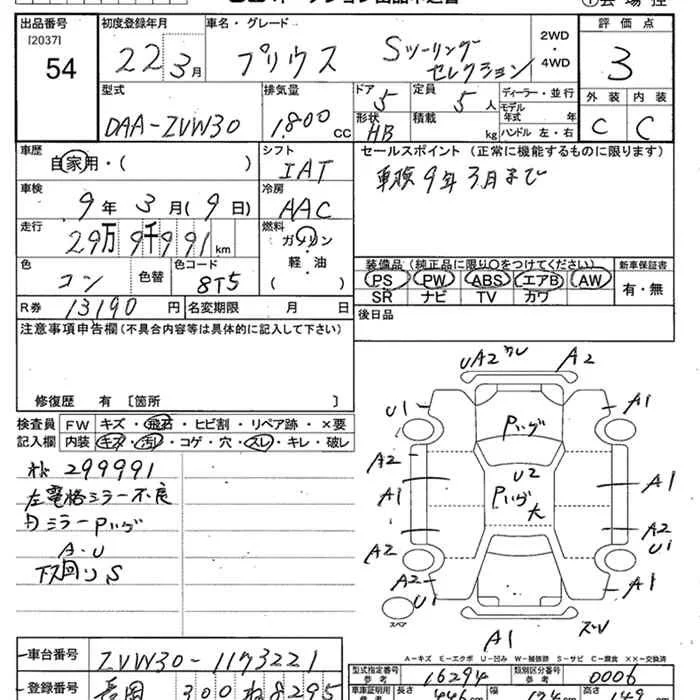 出品番号 初度登録年月 車名・グレード 2WD・4WD 評価点
[2037]
54 22 3月 プリウス Sツーリングセレクション 3
型式 排気量 ドア 5 定員 5人 ディーラー・並行 外装 内装
DAA-ZVW30 1,800cc 形状 HB 積載 kg モデル年式 年 ハンドル 左・右 C C
車歴 シフト セールスポイント(正常に機能するものに限ります)
自家用・( ) IAT 車検9年3月まで
車検 冷房
9年3月(9日) AAC
走行 燃料
29万9千991km ガソリン
色 色替 色コード 軽・油 装備品(純正品に限り○をつけてください) 新車保証書
コン 8T5 ( ) PS PW ABS エアB AW 有・無
SR ナビ TV カワ
R券 13190円 名変期限 月 日 後日品
注意事項申告欄(不具合内容等は具体的に記入して下さい)
修復歴 有 〔箇所 〕
検査員 FW キズ・飛石・ヒビ割・リペア跡・×要
記入欄 内装 キズ・汚レ・コゲ・穴・スレ・キレ・破レ
299991
左電格ミラー不良
内ミラーPハゲ
A・U
下回りS
UA2 ワレ A2
U1 Pハゲ A1
A2 U2
A1 Pハゲ大 A1
A2 A2
U1
A2 A1
U1
スペア A1 ズレ
A-キズ E-エクボ U-凹み W-補修跡 S-サビ C-腐食 XX-交換済
車台番号 ZVW30-1173221 型式指定番号 参考 16294 類別区分番号 参考 0006
登録番号 長岡 300 ね 8295 車車証明用 長さ 446 幅 174 高さ 149